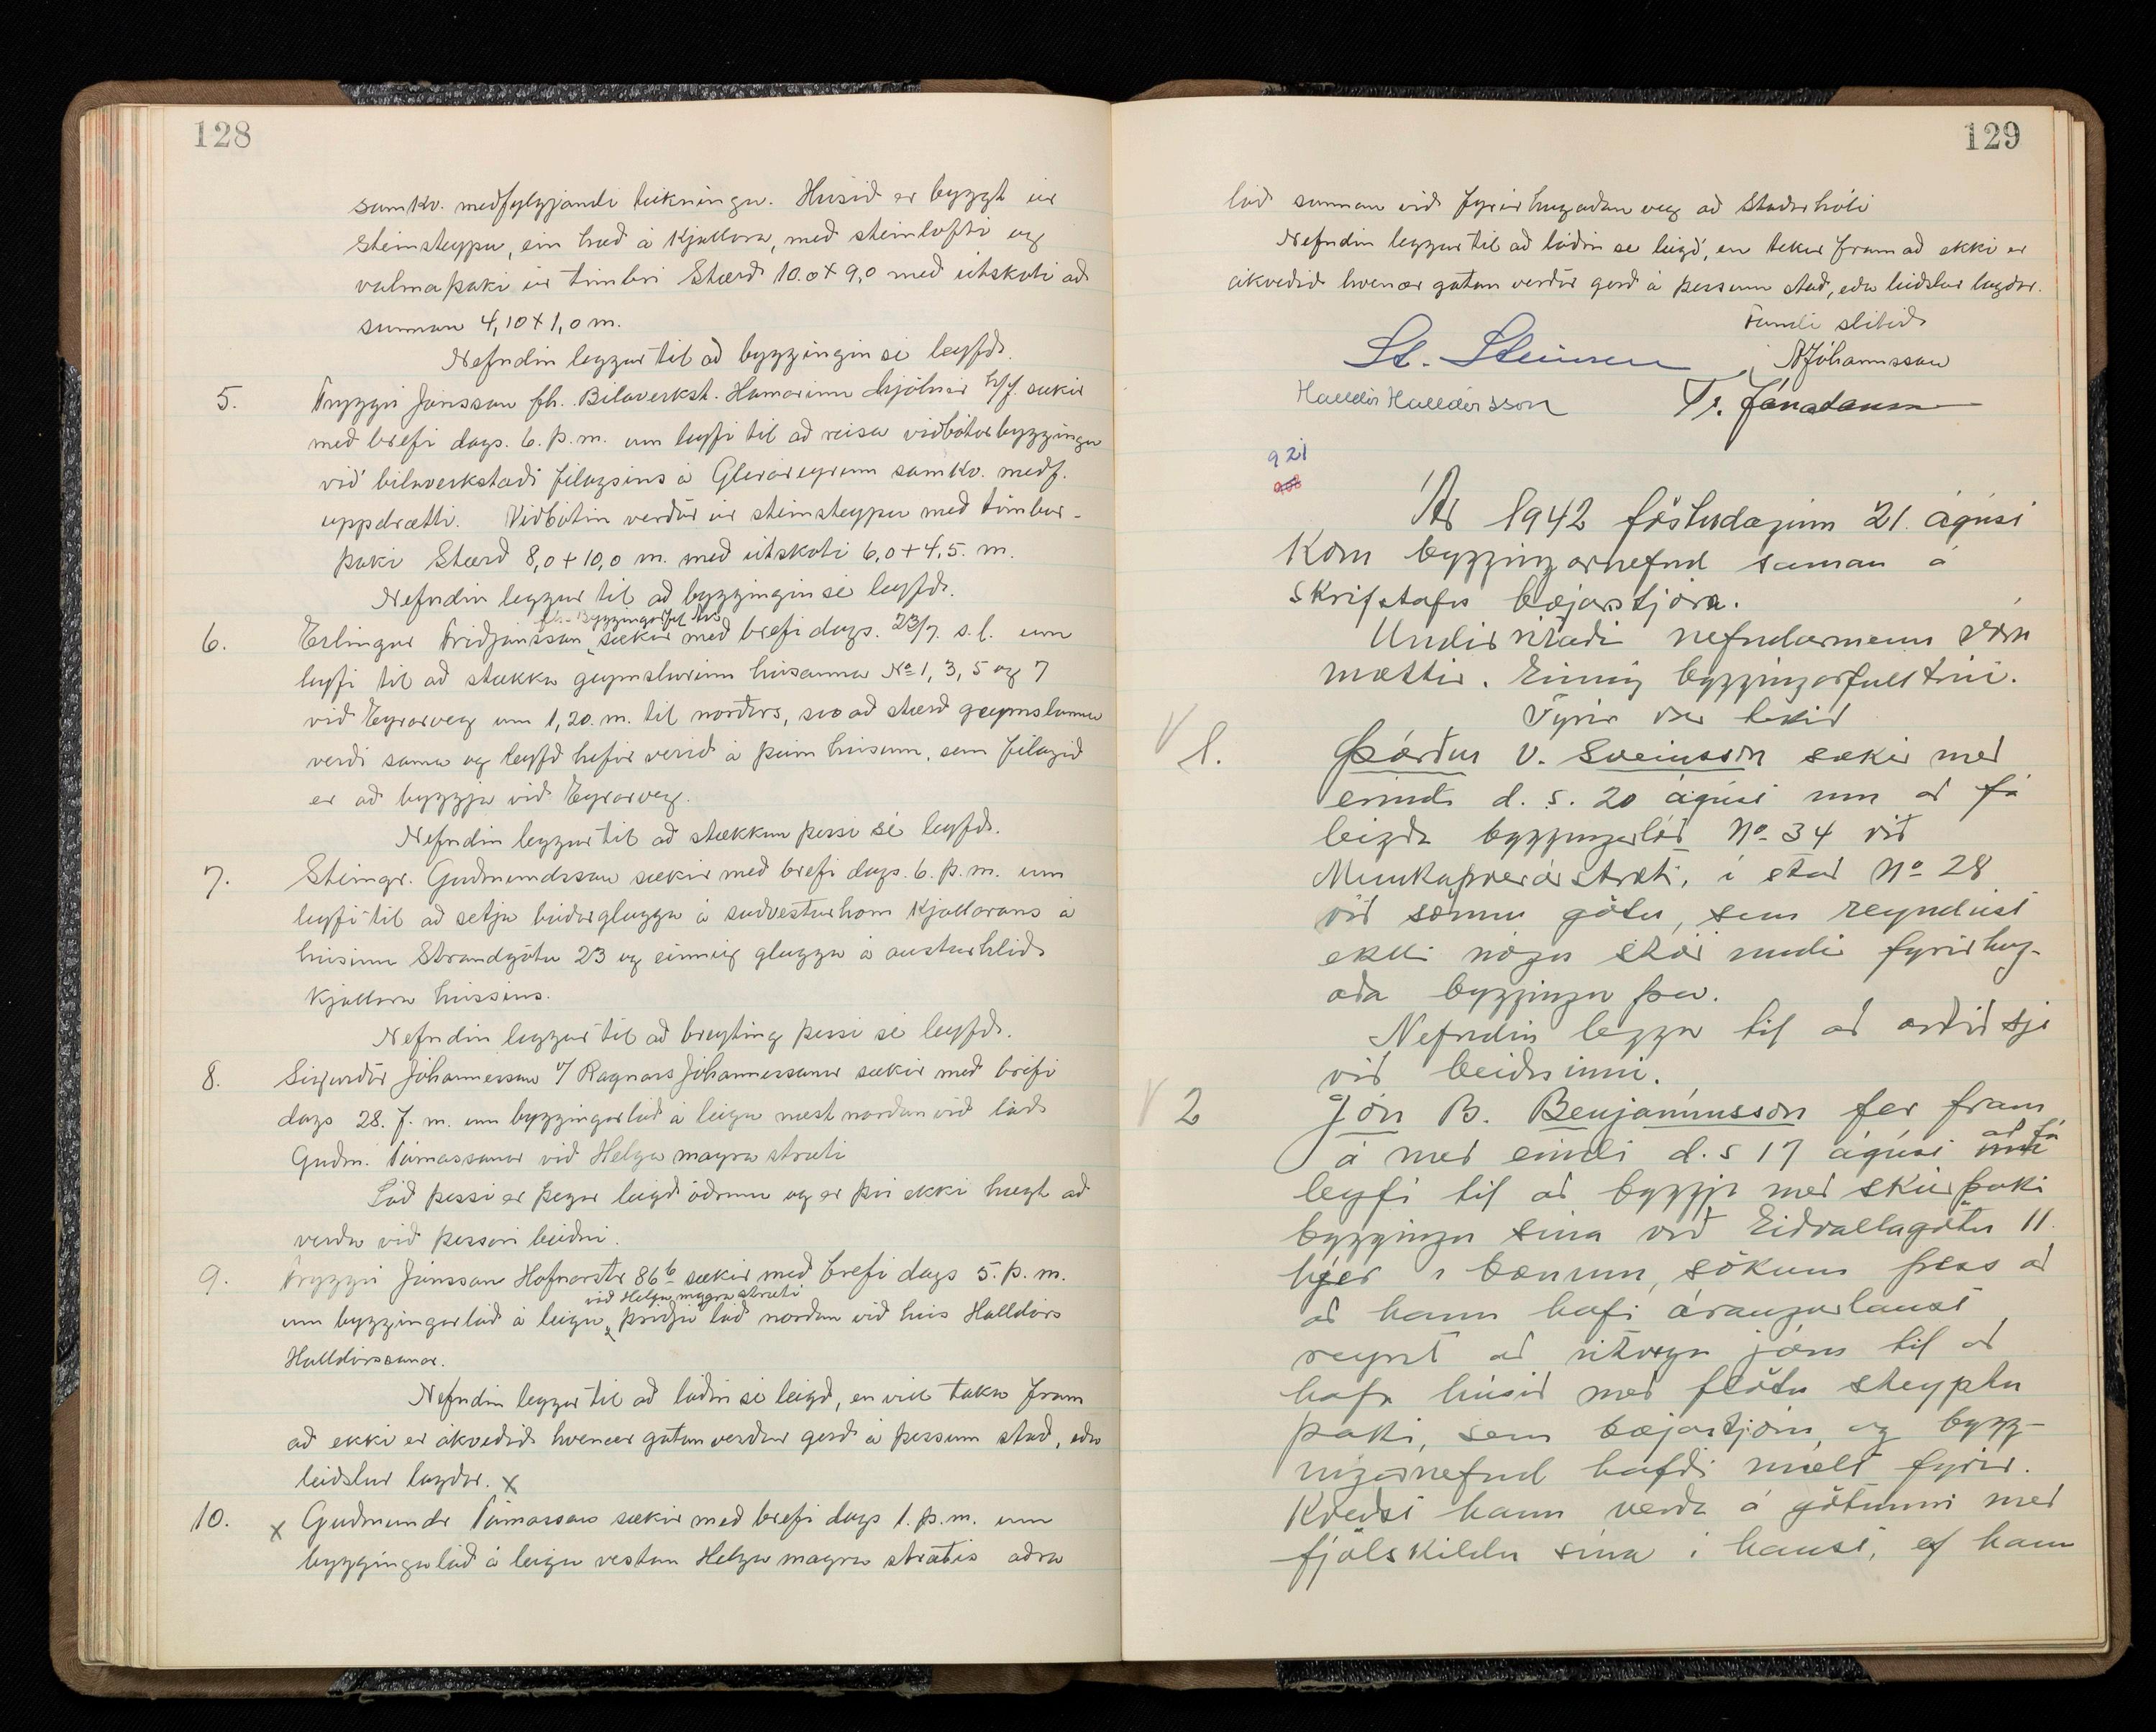 128
samkv. meðfylgjandi teikningu. Húsið er byggt úr
steinsteypu, ein hæð á kjallara, með steinlofti og
valmaþaki úr timbri Stærð 10.0 x 9,0 með útskoti að
sunnan 4,10 x 1,0 m.
Nefndin leggur til að byggingin sé leyfð.
5. Tryggvi Jónsson fh. Bílaverkst. Hamarinn Mjölnir h/f. sækir
með bréfi dags. 6. þ.m. um leyfi til að reisa viðbótarbyggingu
við bílaverkstæði félagsins á Gleráreyrum samkv. meðf.
uppdrætti. Viðbótin verður úr steinsteypu með timbur-
þaki Stærð 8,0 + 10,0 m. með útskoti 6,0 + 4,5. m.
Nefndin leggur til að byggingin sé leyfð.
fh. Byggingarfél. Ak.
6. Erlingur Friðjónsson sækir með bréfi dags. 23/7. s.l. um
leyfi til að stækka geymslurinn húsanna No 1, 3, 5 og 7
við Eyrarveg um 1,20. m. til norðurs, svo að stærð geymslanna
verði sama og leyfð hefir verið á þeim húsum, sem félagið
er að byggja við Eyrarveg.
Nefndin leggur til að stækkun þessi sé leyfð.
7. Steingr. Guðmundsson sækir með bréfi dags. 6. þ.m. um
leyfi til að setja búðarglugga á suðvesturhorn kjallarans á
húsinu Strandgötu 23 og einnig glugga á austurhlið
kjallara hússins.
Nefndin leggur til að breyting þessi sé leyfð.
8. Sigurður Jóhannesson v/ Ragnars Jóhannessonar sækir með bréfi
dags 28. f. m. um byggingarlóð á leigu næst norðan við lóð
Guðm. Tómassonar við Helga magra stræti
Lóð þessi er þegar leigð öðrum og er því ekki hægt að
verða við þessari beiðni.
9. Tryggvi Jónsson Hafnarstr 86b sækir með bréfi dags 5. þ.m.
við Helga magra stræti
um byggingarlóð á leigu, þriðju lóð norðan við hús Halldórs
Halldórssonar.
Nefndin leggur til að lóðin sé leigð, en vill taka fram
að ekki er ákveðið hvenær gatan verður gerð á þessum stað, eða
leiðslur lagðar. x
10. x Guðmundr Tómasson sækir með bréfi dags 1. þ.m. um
byggingalóð á leigu vestan Helga magra strætis aðra
129
lóð sunnan við fyrirhugaðan veg að Staðarhóli
Nefndin leggur til að lóðin sé leigð, en tekur fram að ekki er
ákveðið hvenær gatan verður gerð á þessum stað, eða leiðslur lagðar.
Fundi slitið
St. Steinsen
Jóhannsson
Halldór Halldórsson
Tr. Jónatansson
921
Ár 1942 föstudaginn 21. ágúst
kom byggingarnefnd saman á
skrifstofu bæjarstjóra.
Undirritaðir nefndarmenn voru
mættir. Einnig byggingarfulltrúi.
Fyrir var tekið
V 1. Þórður V. Sveinsson sækir með
erindi d. s. 20 ágúst um að fá
leigða byggingarlóð No 34 við
Munkaþverárstræti, í stað No 28
við sömu götu, sem reyndist
ekki nógu stór undir fyrirhug-
aða byggingu þar.
Nefndin leggur til að orðið sje
við beiðninni.
V 2 Jón B. Benjamínsson fer fram
á með erindi d. s 17 ágúst um að fá
leyfi til að byggja með skúrþaki
byggingu sína við Eiðsvallagötu 11.
hjer í bænum, sökum þess að
að hann hafi árangurslaust
reynt að útvega járn til að
hafa húsið með flötu steyptu
þaki, sem bæjarstjórn og bygg-
ingarnefnd hafði mælt fyrir.
Kveðst hann verða á götunni með
fjölskyldu sína í haust, ef hann